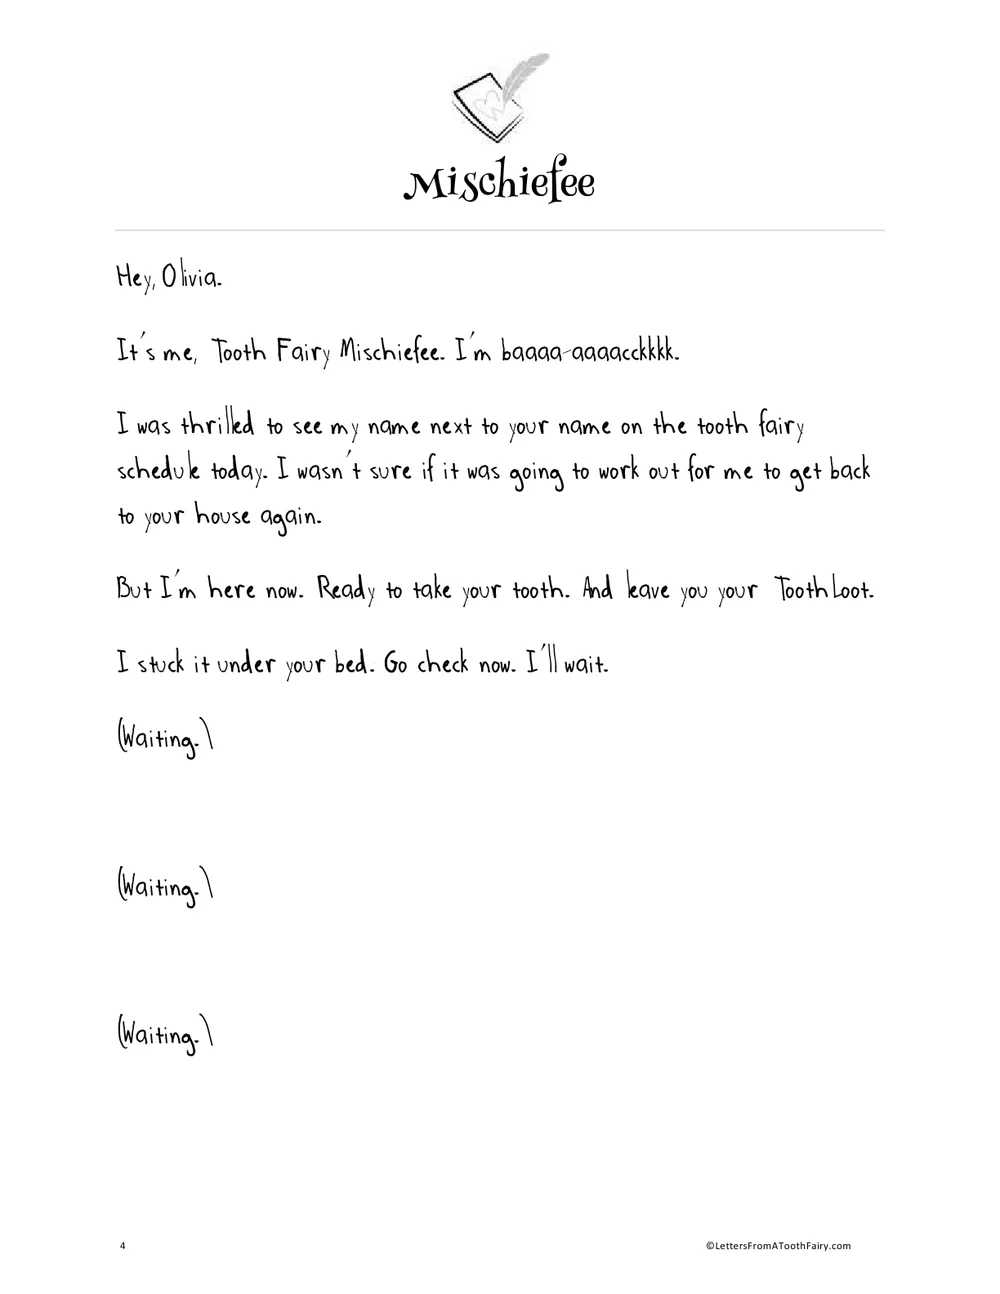 Mischiefee
Hey, Olivia.
It's me, Tooth Fairy Mischiefee. I'm baaaa-aaaacckkkk.
I was thrilled to see my name next to your name on the tooth fairy
schedule today. I wasn't sure if it was going to work out for me to get back
to your house again.
But I'm here now. Ready to take your tooth. And leave you your Tooth Loot.
I stuck it under your bed. Go check now. I'll wait.
(Waiting.)
(Waiting.)
(Waiting.)
4 ©LettersFromAToothFairy.com